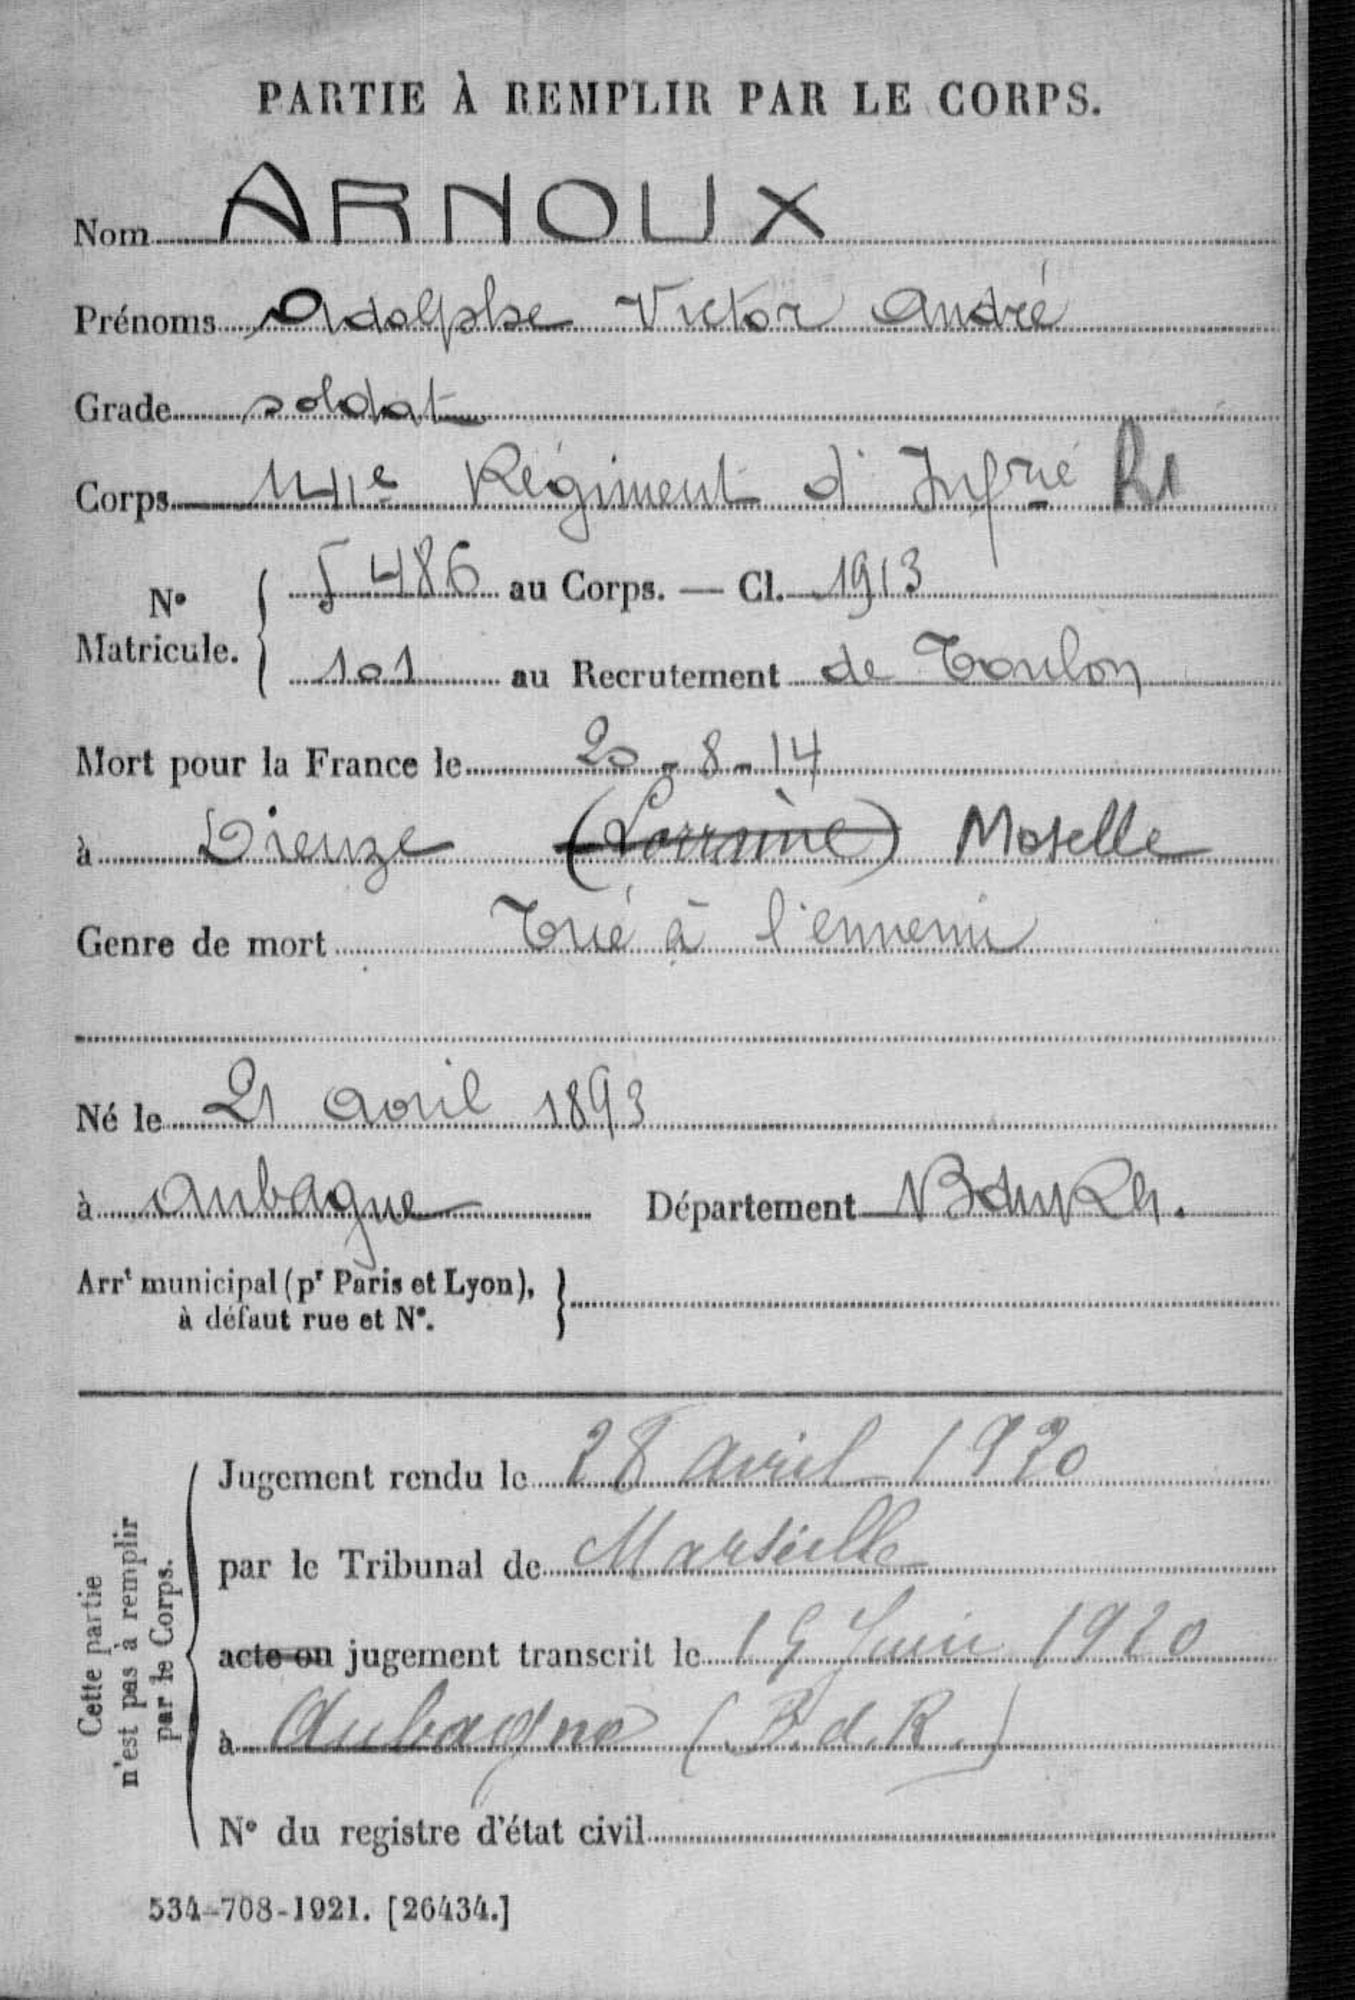 PARTIE À REMPLIR PAR LE CORPS.
Nom ARNOUX
Prénoms Adolphe Victor André
Grade soldat
Corps 141e Régiment d'Infrie RI
No Matricule. { 5486 au Corps. — Cl. 1913
101 au Recrutement de Toulon
Mort pour la France le 20-8-14
à Dieuze (Lorraine) Moselle
Genre de mort Tué à l'ennemi
Né le 21 avril 1893
à Aubagne Département B du Rh.
Arrt municipal (pr Paris et Lyon), à défaut rue et No. }
Cette partie n'est pas à remplir par le Corps.
Jugement rendu le 28 avril 1920
par le Tribunal de Marseille
acte ou jugement transcrit le 15 Juin 1920
à Aubagne (B.d.R.)
No du registre d'état civil
534-708-1921. [26434.]